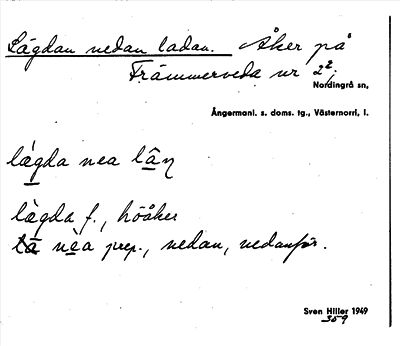 Lägdan nedan ladan. Åker på
Främmerveda nr 2²;
Nordingrå sn,
Ångermanl. s. doms. tg., Västernorrl. l.
lägda nea lâŋ
lägda f., höåker
nea prep., nedan, nedanför.
Sven Hiller 1949
359